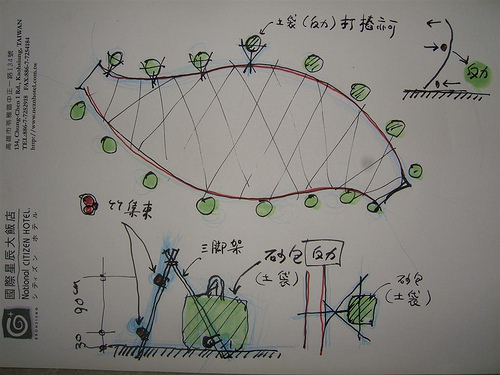 土袋(反力)打樁亦可
反力
竹集束
三脚架
砂包
(土袋)
反力
砂包
(土袋)
90 cm
30
國際星辰大飯店
National CITIZEN HOTEL
シティズン ホテル
高雄市苓雅區中正一路134號
134, Chung-Chen 1 Rd., Kaohsiung, TAIWAN
http://www.ncinhotel.com.tw